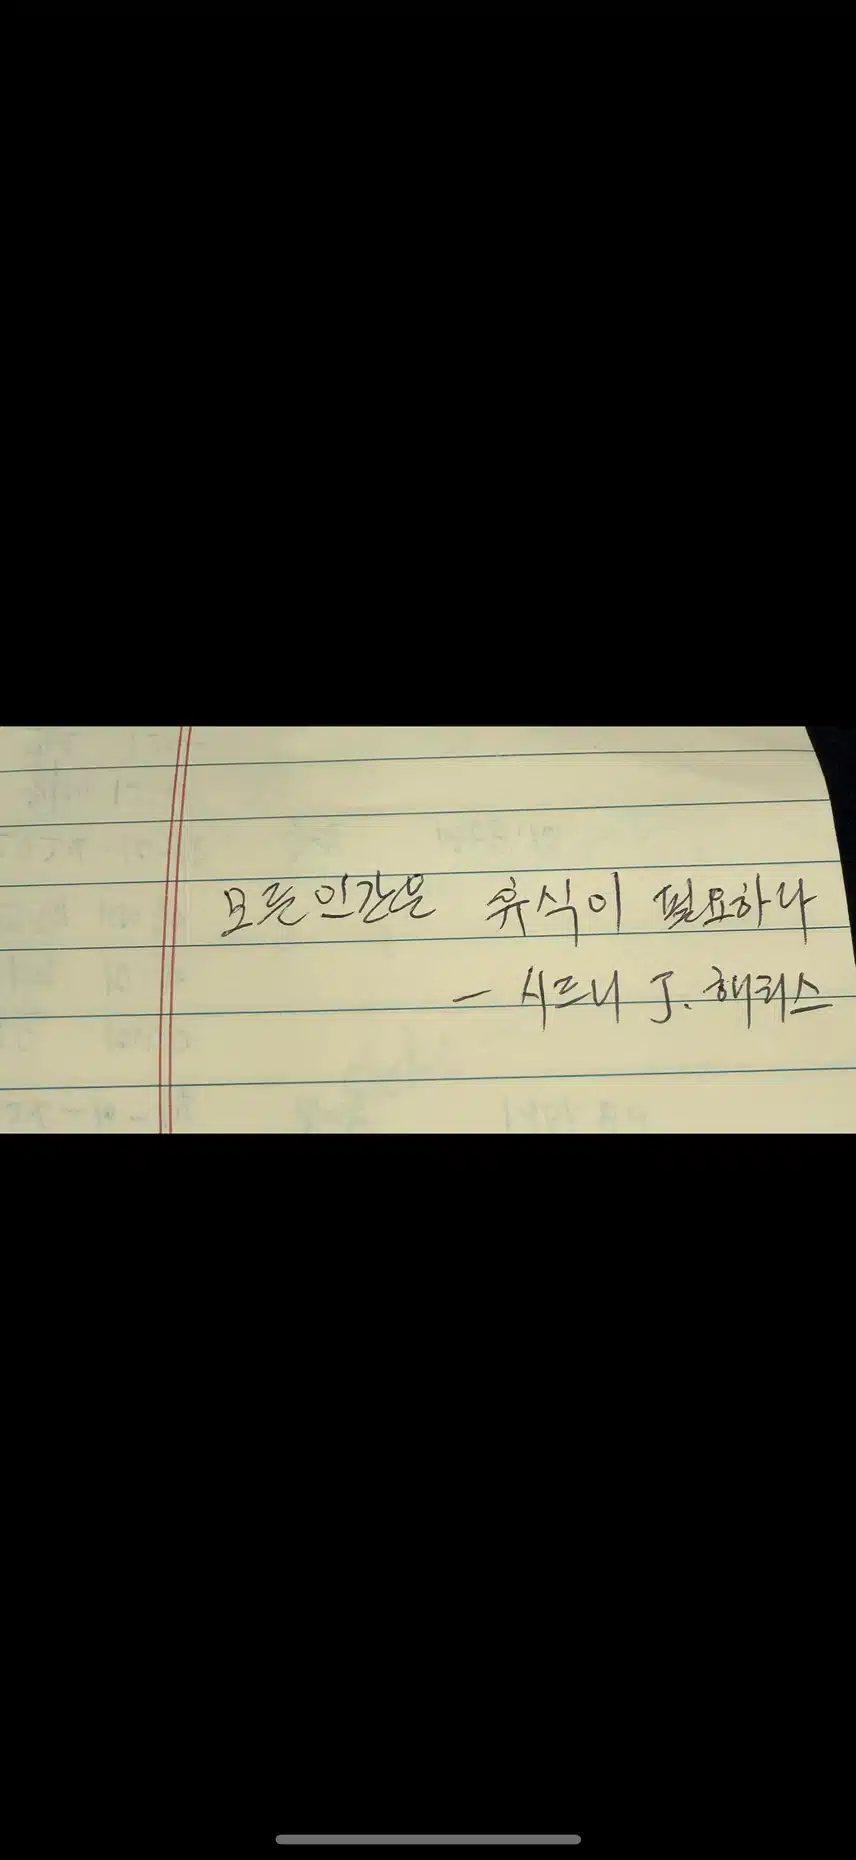 모든인간은 휴식이 필요하다
- 시드니 J. 해리스